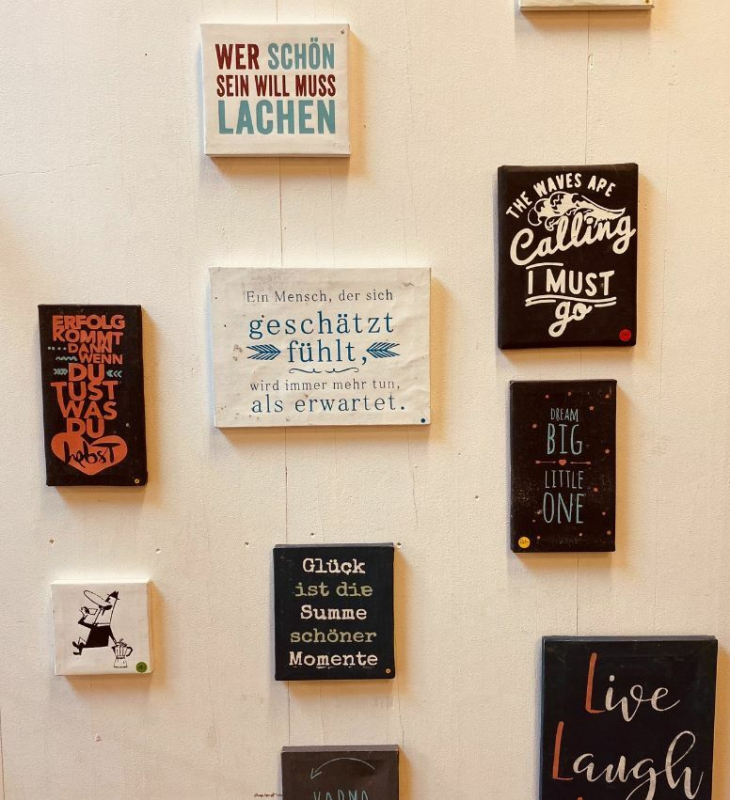 WER SCHÖN
SEIN WILL MUSS
LACHEN
THE WAVES ARE
Calling
I MUST
go
Ein Mensch, der sich
geschätzt
fühlt,
wird immer mehr tun,
als erwartet.
ERFOLG
KOMMT
DANN
WENN
DU
TUST
WAS
DU
liebst
DREAM
BIG
LITTLE
ONE
Glück
ist die
Summe
schöner
Momente
Live
Laugh
KARMA